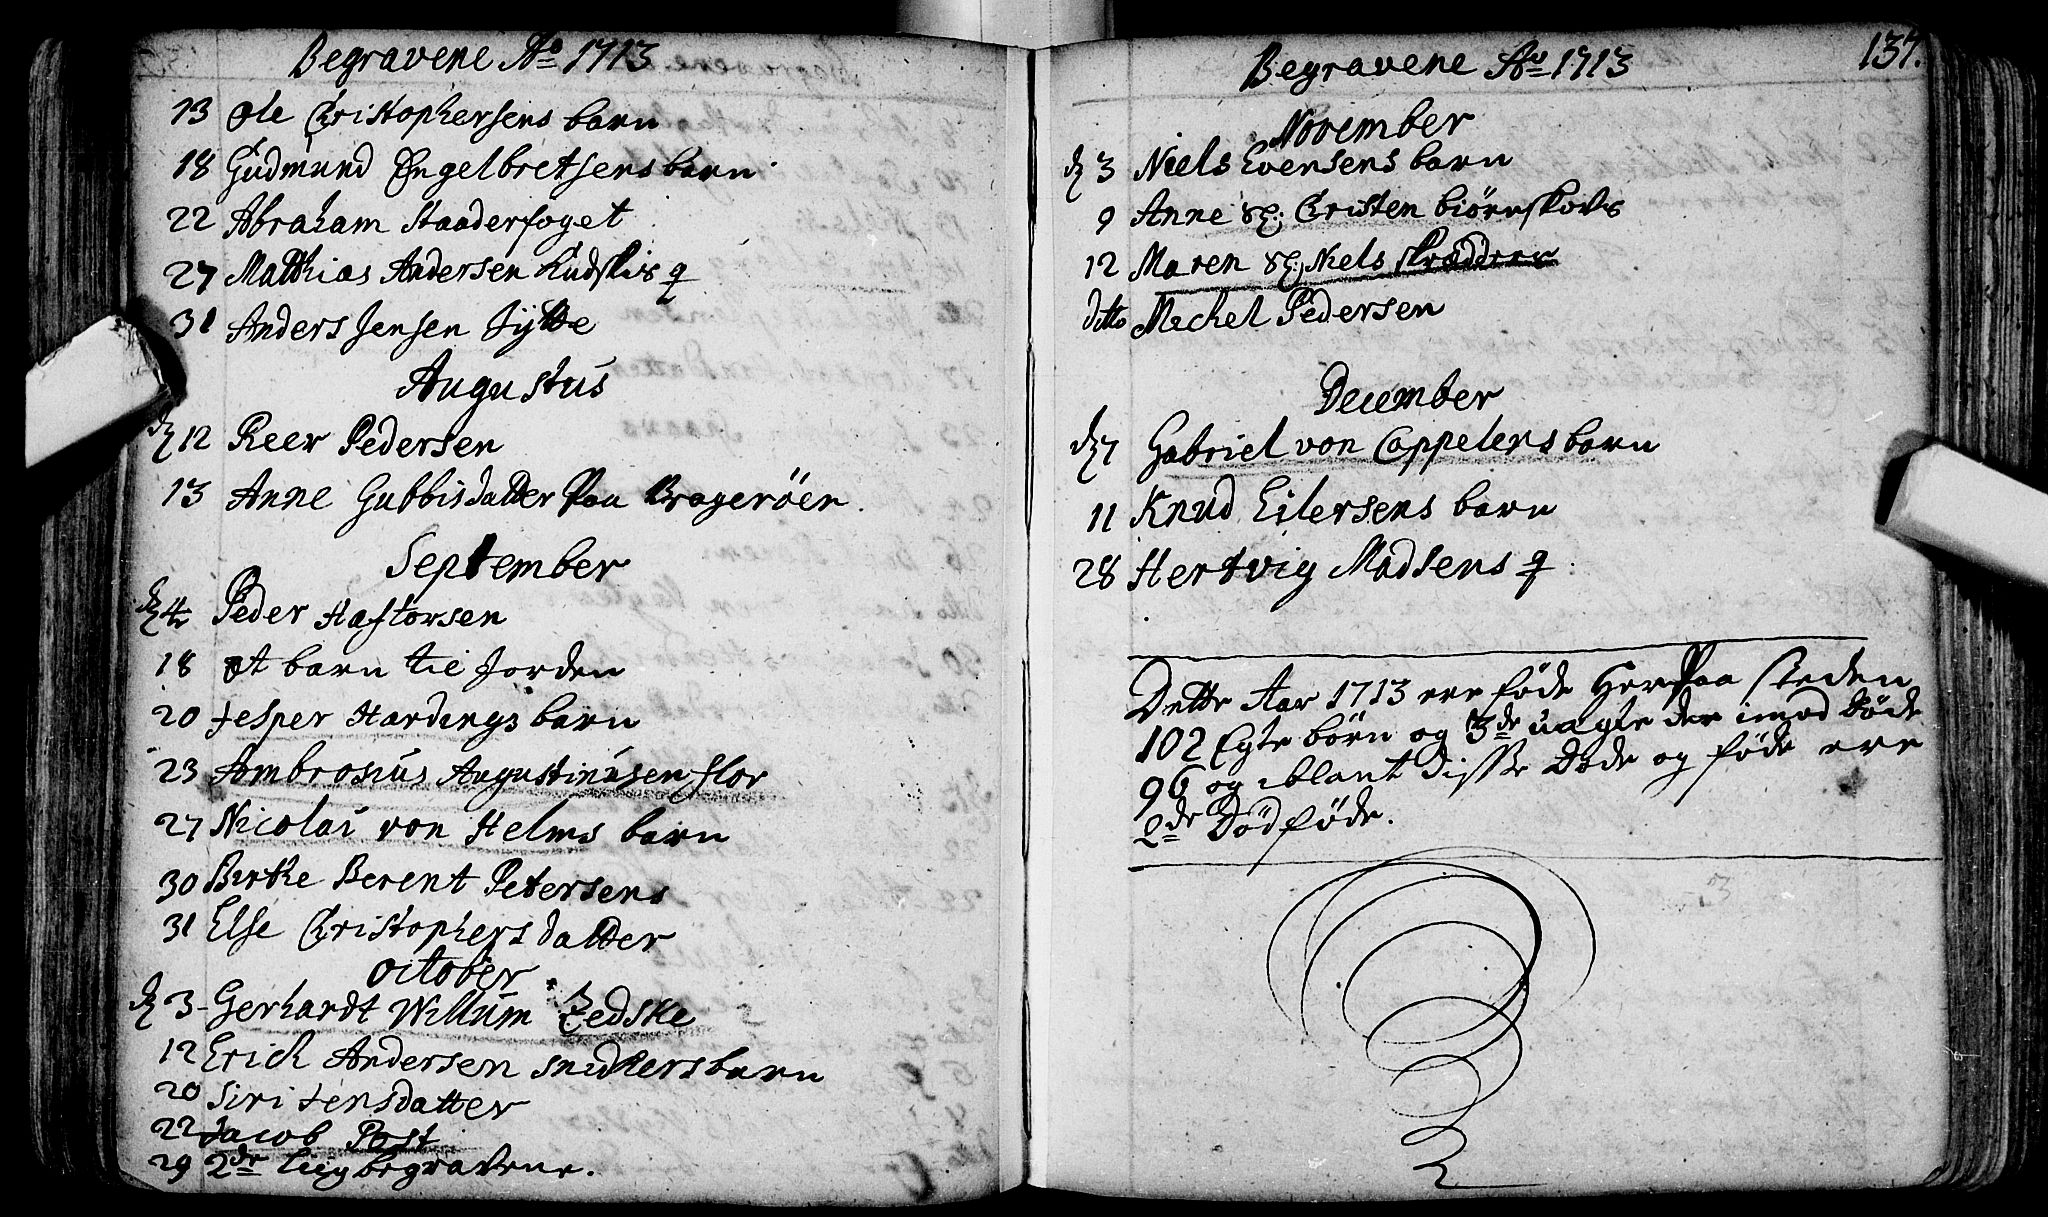 Begravene Ao 1713
13 Ole Christophersens barn
18 Gudmund Engelbretsens barn
22 Abraham Staaderfoget
27 Matthias Andersen Kudskis q
31 Anders Jensen Jÿtte
Augustus
d 12 Reer Pedersen
13 Anne Gubbisdatter Paa Brageröen.
September
d 4 Peder Haftorsen
18 et barn til Jorden
20 Jesper Hardings barn
23 Ambrosius Augustinusen Flor
27 Nicolai von Helms barn
30 Birke Berent Petersens
31 Else Christophersdatter
October
d 3 Gerhardt Willum Tedske
12 Erich Andersen snidkers barn
20 Siri Jensdatter
22 Jacob Post
29 2de liig begravene.
137.
Begravene Ao 1713
November
d 3 Niels Evensens barn
9 Anne sl: Christen biörnskovs
12 Maren sl: Niels skrædders
ditto Michel Pedersen
December
d 7 Gabriel von Cappelens barn
11 Knud Eilersens barn
28 Hertvig Madsens q
Dette Aar 1713 ere föde Her Paa steden
102 Egte börn og 3de uægte der imod döde
96 og iblant disse döde og föde ere
2de Dödföde.